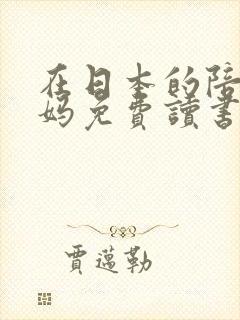 在日本的陪
妈免費讀書
賈邁勒